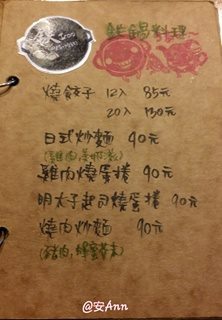 鮮鍋料理~
燒餃子 12入 85元
20入 130元
日式炒麵 90元
雞肉燒蛋捲 90元
明太子起司燒蛋捲 90元
燒肉炒麵 90元
(豬肉,蜂蜜芥末)
@安Ann